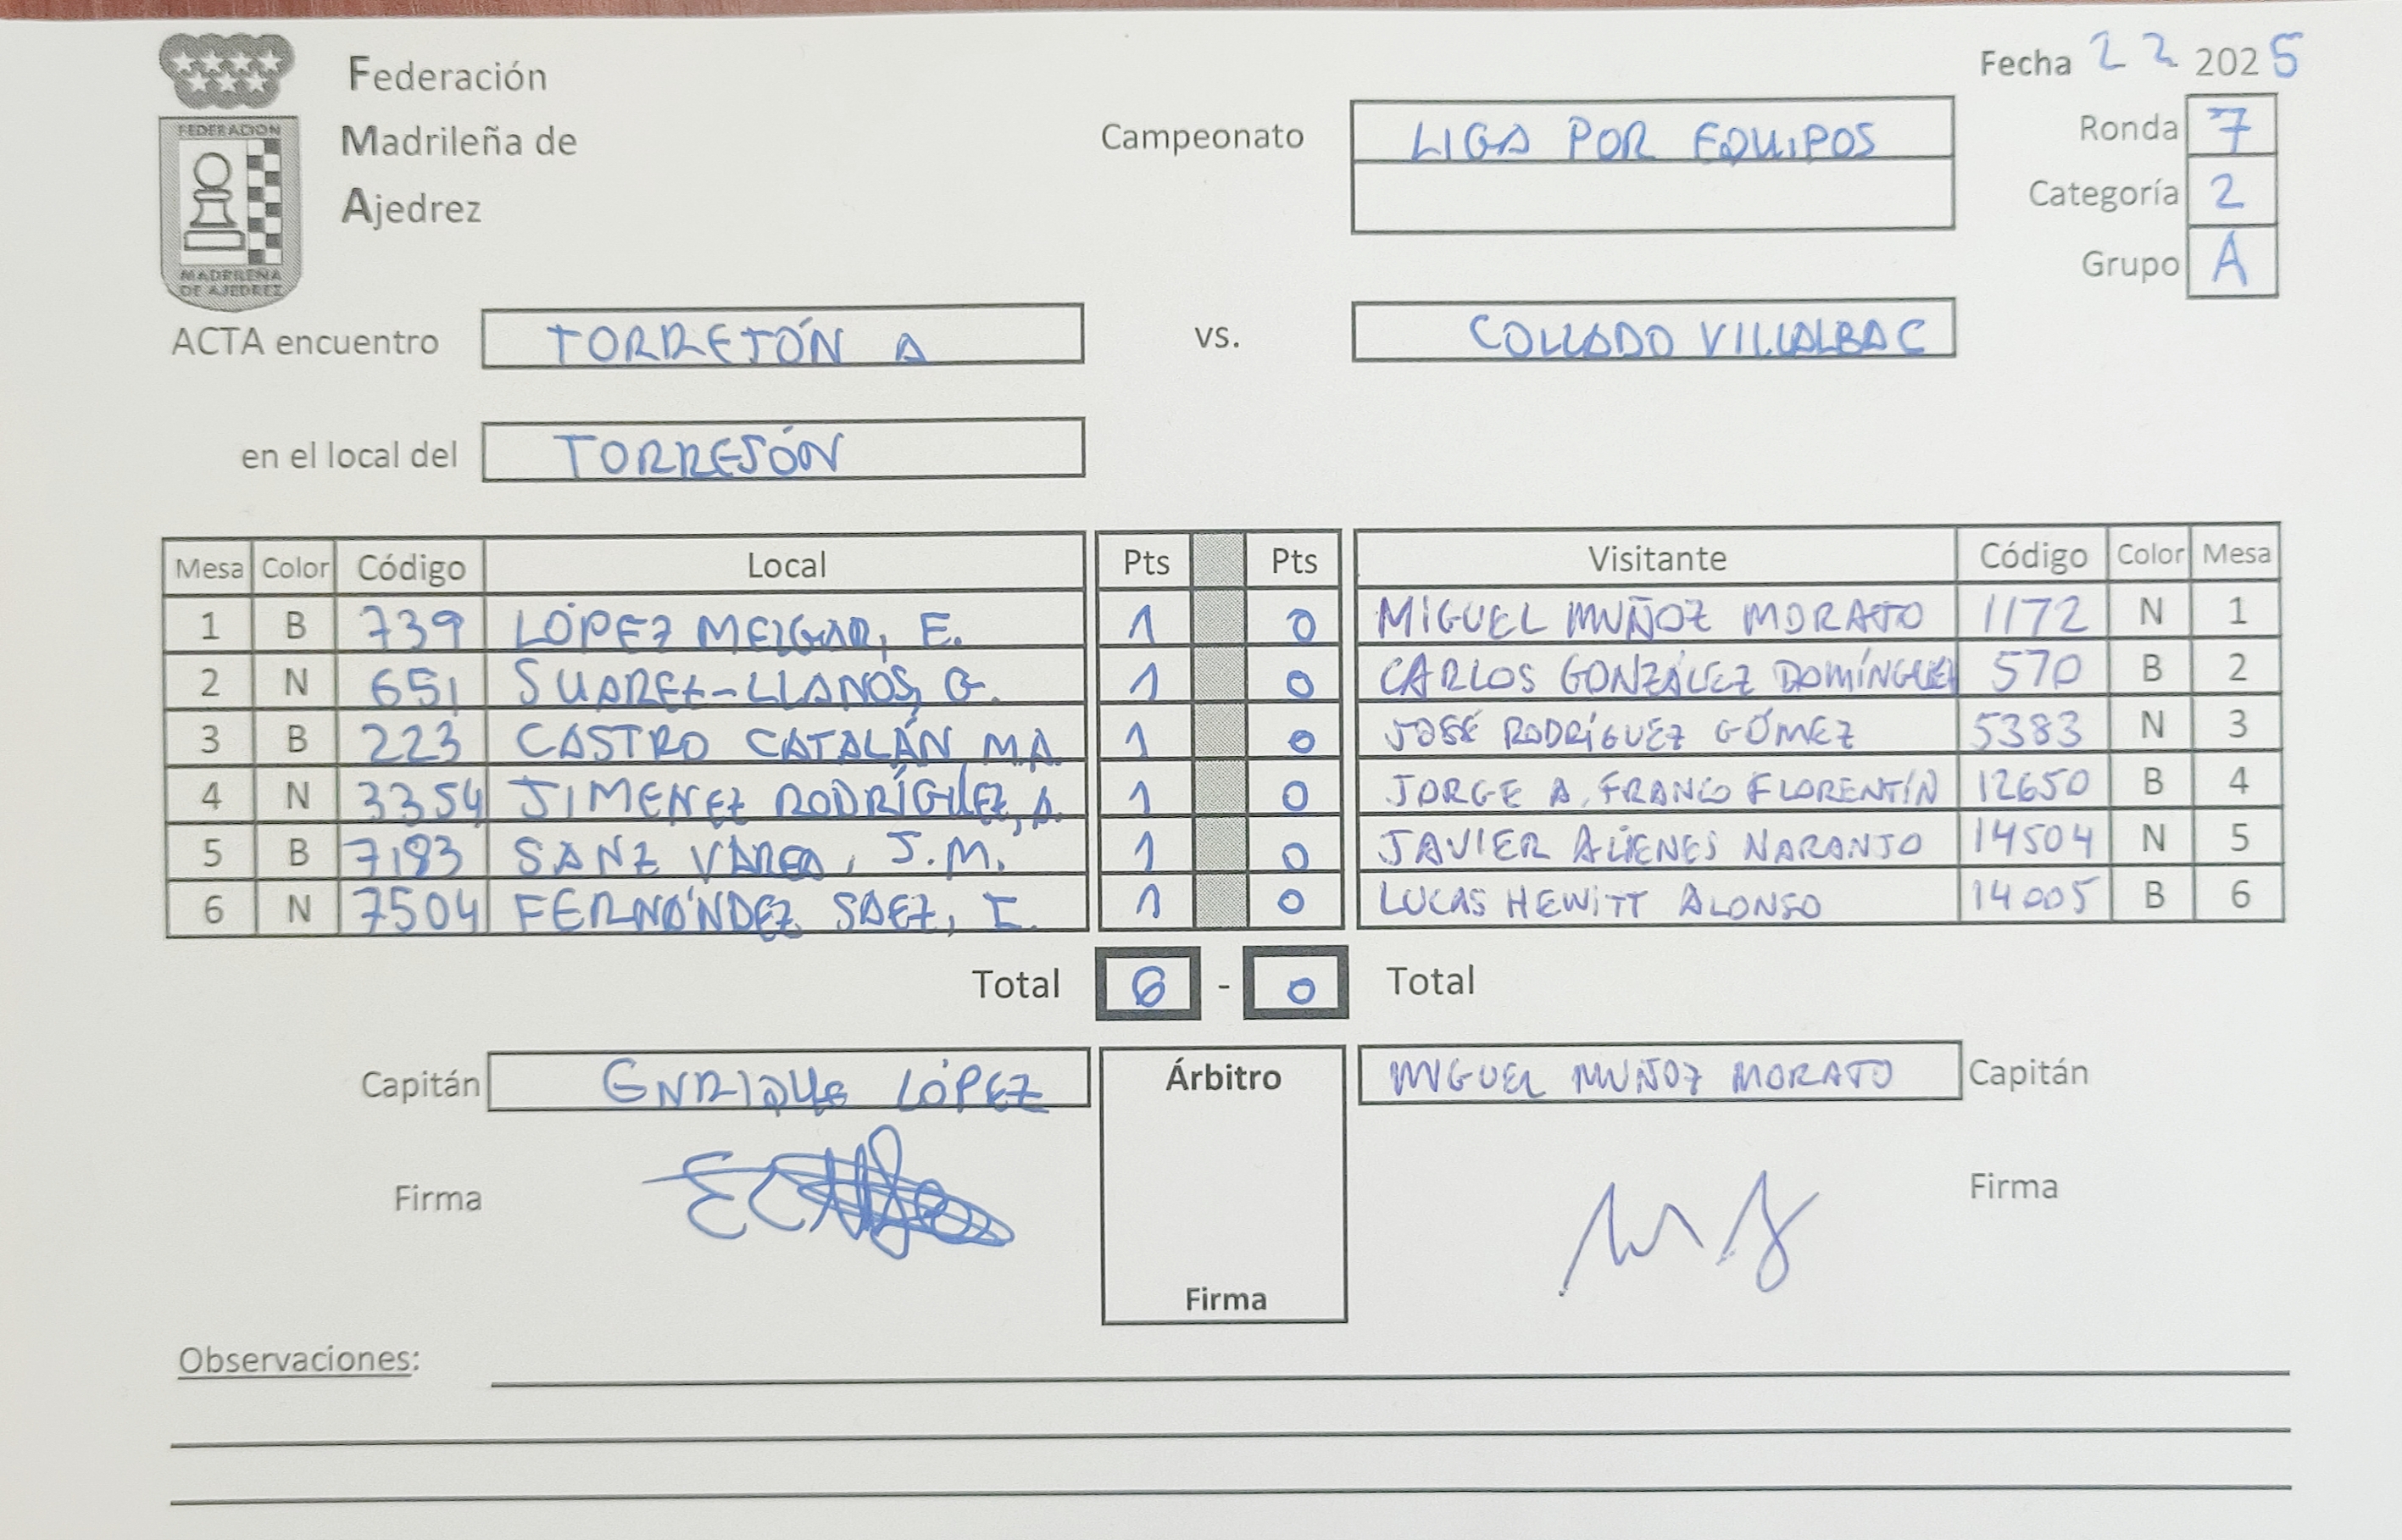 Federación
Madrileña de
Ajedrez
FEDERACION
MADRILEÑA
DE AJEDREZ
Fecha 2 2 2025
Campeonato LIGA POR EQUIPOS
Ronda 7
Categoría 2
Grupo A
ACTA encuentro TORREJÓN A vs. COLLADO VILLALBA C
en el local del TORREJÓN
Mesa Color Código Local Pts Pts Visitante Código Color Mesa
1 B 739 LÓPEZ MELGAR, E. 1 0 MIGUEL MUÑOZ MORATO 1172 N 1
2 N 651 SUAREZ-LLANOS, G. 1 0 CARLOS GONZÁLEZ DOMÍNGUEZ 570 B 2
3 B 223 CASTRO CATALÁN M.A. 1 0 JOSÉ RODRÍGUEZ GÓMEZ 5383 N 3
4 N 3354 JIMENEZ RODRÍGUEZ, A. 1 0 JORGE A. FRANCO FLORENTÍN 12650 B 4
5 B 7193 SANZ VAREA, J.M. 1 0 JAVIER NARANJO 14504 N 5
6 N 7504 FERNÁNDEZ SAEZ, I. 1 0 LUCAS HEWITT ALONSO 14005 B 6
Total 6 - 0 Total
Capitán ENRIQUE LÓPEZ Árbitro MIGUEL MUÑOZ MORATO Capitán
Firma Firma
Firma
Observaciones: